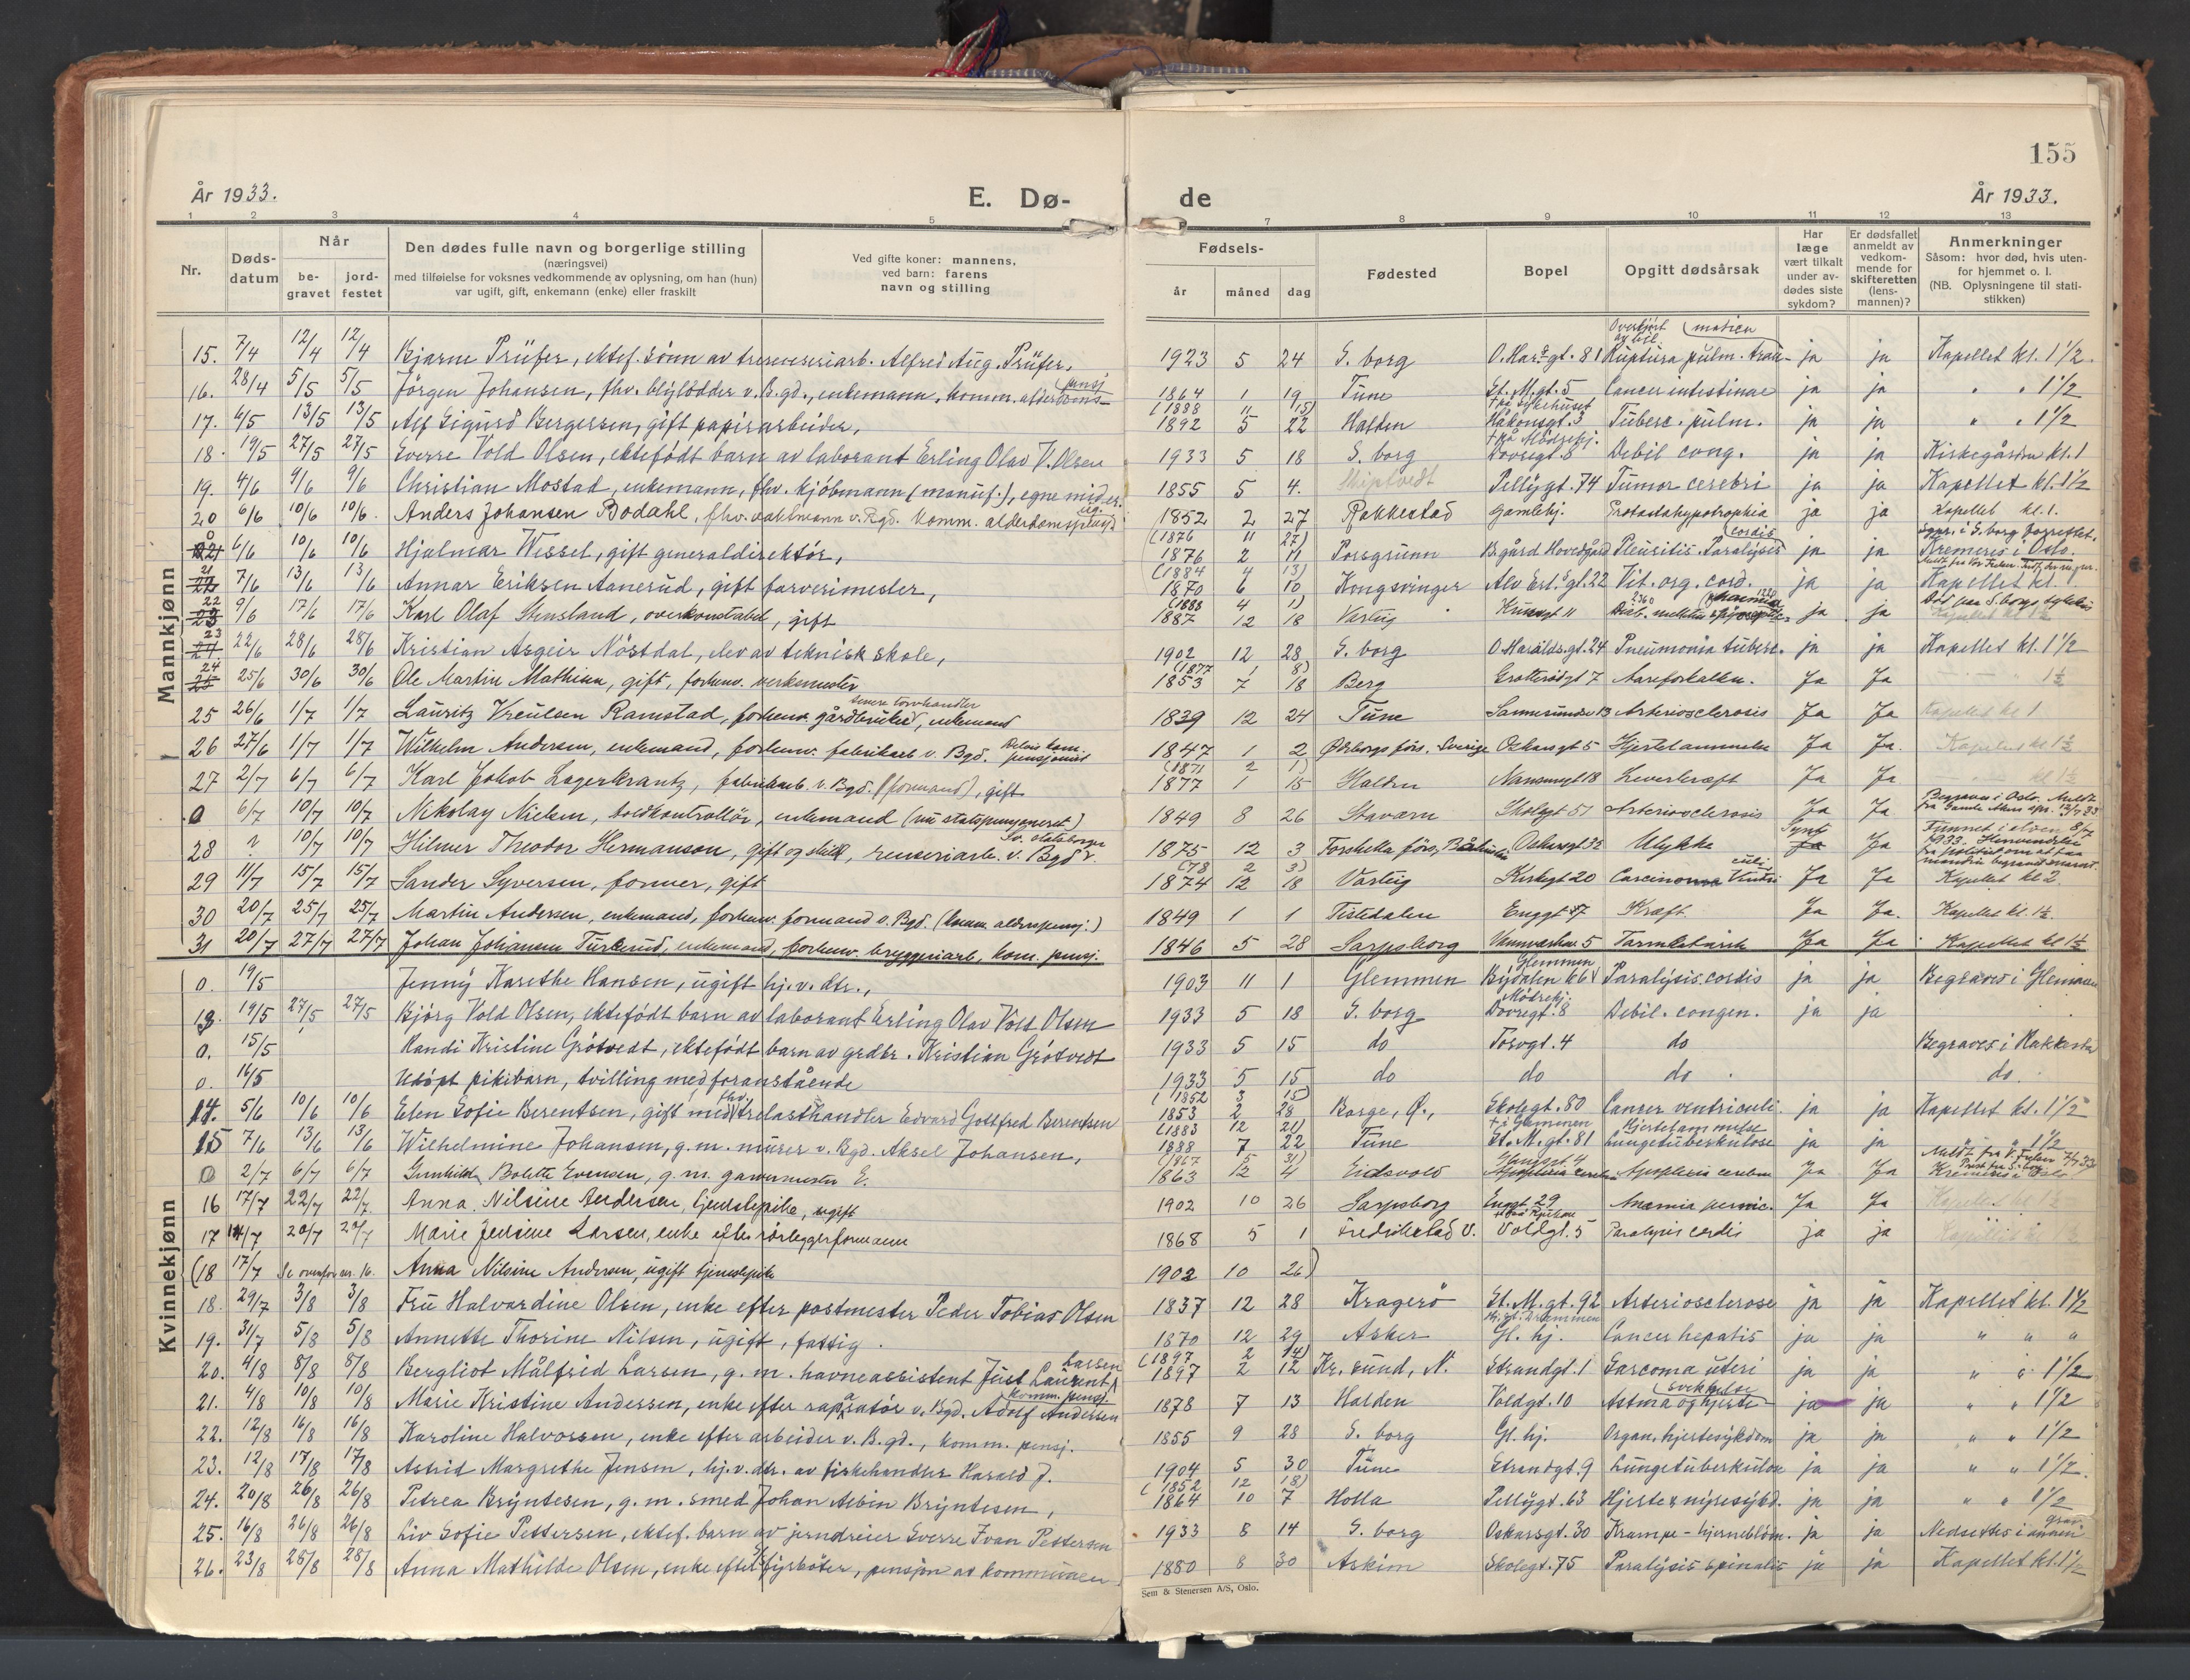 155
År 1933. E. Dø- de År 1933.
1 2 3 4 5 7 8 9 10 11 12 13
Nr. Døds-datum Når be-gravet jord-festet Den dødes fulle navn og borgerlige stilling (næringsvei) med tilføielse for voksnes vedkommende av oplysning, om han (hun) var ugift, gift, enkemann (enke) eller fraskilt Ved gifte koner: mannens, ved barn: farens navn og stilling Fødsels- år måned dag Fødested Bopel Opgitt dødsårsak Har læge vært tilkalt under av-dødes siste sykdom? Er dødsfallet anmeldt av vedkom-mende for skifteretten (lens-mannen)? Anmerkninger Såsom: hvor død, hvis uten-for hjemmet o. l. (NB. Oplysningene til stati-stikken)
Mannkjønn
15. 7/4 12/4 12/4 Bjarne Prüfer, ektef. sønn av Alfred Aug. Prüfer. 1923 5 24 S. borg O. Har. gt. 81 Overkjørt av bil. Ruptura pulm. ja ja Kapellet kl. 1 1/2
16. 28/4 5/5 5/5 Jörgen Johansen, fhv. blylodder v. B.gd., enkemann, komm. alders pensj. 1864 1 19 Tune St. M. gt. 5 Cancer intestinae ja ja " " 1 1/2
17. 6/5 13/5 13/5 Alf Sigurd Bergersen, gift papirarbeider, (1888 11 15) 1892 5 22 Halden † på sykehuset Håkonsgt. 3 Tuberc. pulm. ja ja " " 1 1/2
18. 19/5 27/5 27/5 Sverre Vold Olsen, ektefødt barn av laborant Erling Olav V. Olsen 1933 5 18 S. borg † på Mödrehj. Dovregt 8 Debil cong. ja ja Kirkegården kl. 1
19. 4/6 9/6 9/6 Christian Mostad, enkemann, fhv. kjöbmann (manuf.), egne midler. 1855 5 4. Skiptvedt Pellygt. 74 Tumor cerebri ja ja Kapellet kl. 1 1/2
20 6/6 10/6 10/6. Anders Johansen Bodahl, fhv. v. Bgd. komm. alderdomspensj. 1852 2 27 Rakkestad Gamlehj. ja ja Kapellet kl. 1.
0 21 6/6 10/6 10/6 Hjalmar Wessel, gift generaldirektör, (1876 11 27) 1876 2 11 Porsgrunn B.gård Hovedgård Pleusitis. Paralysis cordis ja ja Kremeres i Oslo.
21 22 7/6 13/6 13/6 Annar Eriksen Aanerud, gift farverimester, (1884 4 13) 1870 6 10 Kongsvinger Alv Erl. s gt. 22 Vit. org. cord. ja ja Kapellet kl. 1
22 23 9/6 17/6 17/6 Karl Olaf Stensland, overkonstabel, gift (1888 4 1) 1887 12 18 Varteig Krusegt 11 ja ja
23 24 22/6 28/6 28/6 Kristian Asgeir Nöstdal, elev av teknisk skole, 1902 12 28 S. borg O. Haralds. gt. 24 Pneumonia tuberc. ja ja Kapellet kl. 1 1/2
24 25 25/6 30/6 30/6 Ole Martin Mathisen, gift, forhenv. verksmester (1877 1 8) 1853 7 18 Berg Grotterødgt 7 Aareforkalkn. Ja Ja 1 1/2
25 26/6 1/7 1/7 Lauritz Ramstad, forhenv. gårdbruker, senere torvhandler enkemand 1839 12 24 Tune Sannesundsv 13 Arteriosclerosis Ja Ja Kapellet kl 1
26 27/6 1/7 1/7 Wilhelm Andersen, enkemand, forhenv. fabrikarb. v. Bgd. Delvis kom. pensjonist 1847 1 2 Sverige Oskarsgt 5 Hjertelammelse Ja Ja. Kapellet kl 1 1/2
27 2/7 6/7 6/7 Karl Jakob Lagerkrantz, fabrikarb. v. Bgd. (formand), gift (1871 2 1) 1877 1 15 Halden Nansensgt 18 Leverkræft Ja Ja kl 1 1/2
0 6/7 10/7 10/7 Nikolay Nielsen, toldkontrollör, enkemand (nu statspensjoneret) 1849 8 26 Stavern Skolegt 51 Arteriosclerosis Ja Ja Begraves i Oslo.
28 ? 10/7 10/7 Hilmer Theodor Hermanson, gift og skilt, renseriarb. v. Bgd. Sv. statsborger 1875 12 3 Oskarsgt 32 Ulykke Ja Funnet i elven 8/7 1933.
29 11/7 15/7 15/7 Sander Syversen, former, gift (78 2 3) 1874 12 18 Varteig Kirkegt 20 Carcinoma Ja Ja Kapellet kl 2.
30 20/7 25/7 25/7 Martin Andersen, enkemand, forhenv. formand v. Bgd. (komm. alderspensj.) 1849 1 1 Tistedalen Enggt 37 Kræft Ja Ja. Kapellet kl. 1 1/2
31 20/7 27/7 27/7 Johan Johansen Turkerud, enkemand, forhenv. bryggeriarb., kom. pensj. 1846 5 28 Sarpsborg 5 Ja Ja Kapellet kl 1 1/2
Kvinnekjønn
0. 19/5 Jenny Karethe Hansen, ugift hj. v. dtr., 1903 11 1 Glemmen Glemmen Bydalen 66 Paralysis cordis ja ja Begraves i Glemmen
13. 19/5 27/5 27/5 Bjørg Vold Olsen, ektefødt barn av laborant Erling Olav Vold Olsen 1933 5 18 S. borg Mödrehj. Dovregt. 8 Debil. congen. ja ja
0. 15/5 Randi Kristine Grötvedt, ektefødt barn av grdbr. Kristian Grötvedt 1933 5 15 do Torvgt. 4 do Begraves i Rakkestad
0. 16/5 Udöpt pikebarn, tvilling med foranstående 1933 5 15 do do do do.
14. 5/6 10/6 10/6 Elen Sofie Berentsen, gift med fhv. trelasthandler Edvard Gottfred Berentsen (1852 3 15) 1853 2 28 Borge, Ø., Skolegt. 80 Cancer ventriculi. ja ja Kapellet kl. 1 1/2
15 7/6 13/6 13/6 Wilhelmine Johansen, g. m. murer v. Bgd. Aksel Johansen, (1883 12 21) 1888 7 22 Tune † i Glemmen St. M. gt. 81 Hjertelammelse Lungetuberkulose ja ja " 1 1/2
0 2/7 6/7 6/7 Gunhild Bolette Evensen, g. m. garvermester E. (1867 5 31) 1863 12 4 Eidsvold Apoplexia cerebri Ja Ja Kremeres i Oslo
16 17/7 22/7 22/7. Anna Nilsine Andersen, tjenestepike, ugift 1902 10 26 Sarpsborg Enggt. 29 Anæmia pernic. Ja Ja Kapellet kl 1 1/2
17 14/7 20/7 20/7 Marie Jensine Larsen, enke efter rørleggerformann 1868 5 1 Fredrikstad V. Voldgt. 5 Paralysis cordis ja ja
(18 17/7 Se ovenfor nr. 16. Anna Nilsine Andersen, ugift tjenestepike 1902 10 26)
18. 29/7 3/8 3/8 Fru Halvardine Olsen, enke efter postmester Peder Tobias Olsen 1837 12 28 Kragerö St. M. gt. 92 Arteriosclerose ja ja Kapellet kl. 1 1/2
19. 31/7 5/8 5/8 Annette Thorine Nilsen, ugift, fattig. 1870 12 29 Asker Gl. hj. Cancer hepatis ja ja " " "
20. 4/8 8/8 8/8 Bergliot Målfrid Larsen, g. m. havneassistent Just Laurent Larsen (1897 2 14) 1897 2 12 Kr. sund, N. Strandgt. 1 Sarcoma uteri ja ja " " 1 1/2
21. 4/8 10/8 10/8 Marie Kristine Andersen, enke efter reparatör v. Bgd. Adolf Andersen (komm. pensj. 1878 7 13 Halden Voldgt. 10 Astma og hjerte svekkelse ja ja " " 1 1/2
22. 12/8 16/8 16/8 Karoline Halvorsen, enke efter arbeider v. B.gd., komm. pensj. 1855 9 28 S. borg Gl. hj. Organ. hjertesykdom ja ja " " 1 1/2
23. 12/8 17/8 17/8 Astrid Margrethe Jensen, hj. v. dtr. av fiskehandler Harald J. 1904 5 30 Tune Strandgt. 9 Lungetuberkulose ja ja " " 1 1/2.
24. 20/8 26/8 26/8 Petrea Bryntesen, g. m. smed Johan Albin Bryntesen, (1852 12 18) 1864 10 7 Holla Pellygt. 63 Hjerte & nyresykd. ja ja " " 1 1/2
25. 16/8 26/8 26/8 Liv Sofie Pettersen, ektef. barn av jerndreier Sverre Ivan Pettersen 1933 8 14 S. borg Oskarsgt. 30 Krampe - hjerneblödn. ja ja Nedsettes i grav
26. 23/8 28/8 28/8 Anna Mathilde Olsen, enke efter fyrböter, pensjon av kommunen. 1880 8 30 Askim Skolegt. 75 Paralysis spinalis ja ja Kapellet kl. 1 1/2
Sem & Stenersen A/S, Oslo.